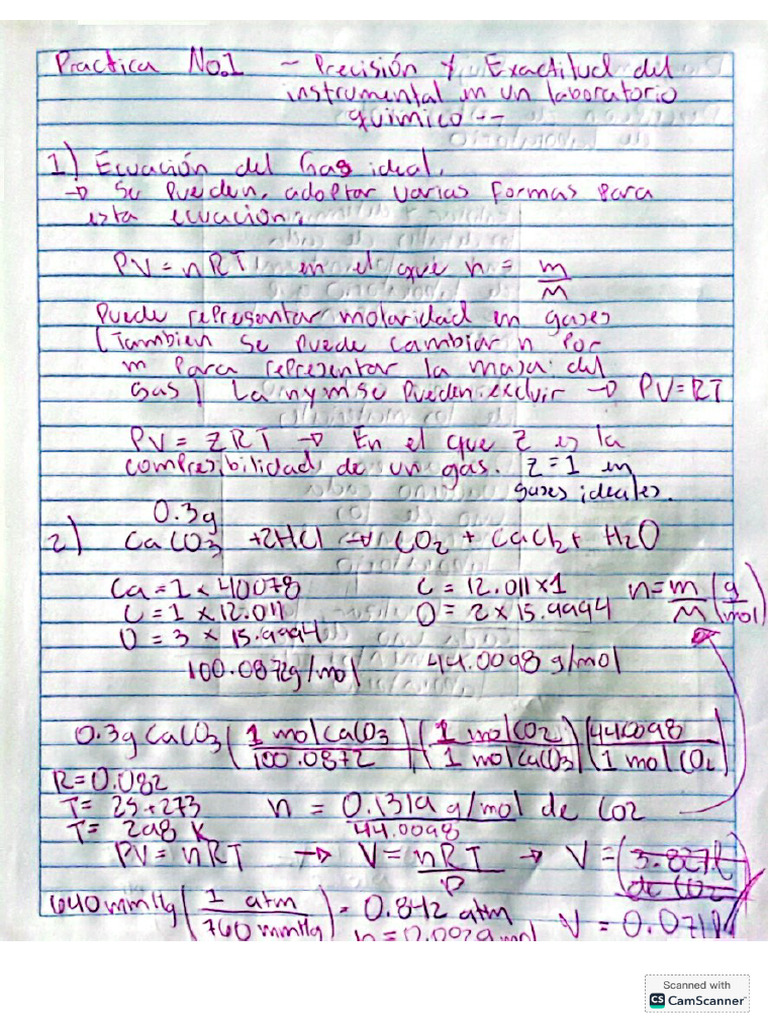 Practica No.1 - Precisión y Exactitud del
instrumental in un laboratorio
químico --
1) Ecuación del Gas ideal.
→ Se Pueden, adoptar varias formas para
esta ecuacion.
PV = nRT en el que n = m/M
Puede representar molaridad en gases
(Tambien se puede cambiar n por
m para representar la masa del
gas) La n y m se pueden excluir → PV=RT
PV = ZRT → En el que Z es la
compresibilidad de un gas. Z=1 en
gases ideales.
0.3g
2) CaCO3 + 2HCl → CO2 + CaCl2 + H2O
Ca = 1 x 40078 C = 12.011 x 1 n = m/M (g/mol)
C = 1 x 12.011 O = 2 x 15.9994
O = 3 x 15.9994
100.0872g/mol 44.0098 g/mol
0.3g CaCO3 (1 mol CaCO3/100.0872) (1 mol CO2/1 mol CaCO3) (440098/1 mol CO2)
R=0.082
T= 25+273 n = 0.1319 g/mol de CO2/44.0098
T= 298 K
PV = nRT → V = nRT/P → V = (3.827l de CO2)
640mmHg (1 atm/760 mmHg) = 0.842 atm V = 0.071